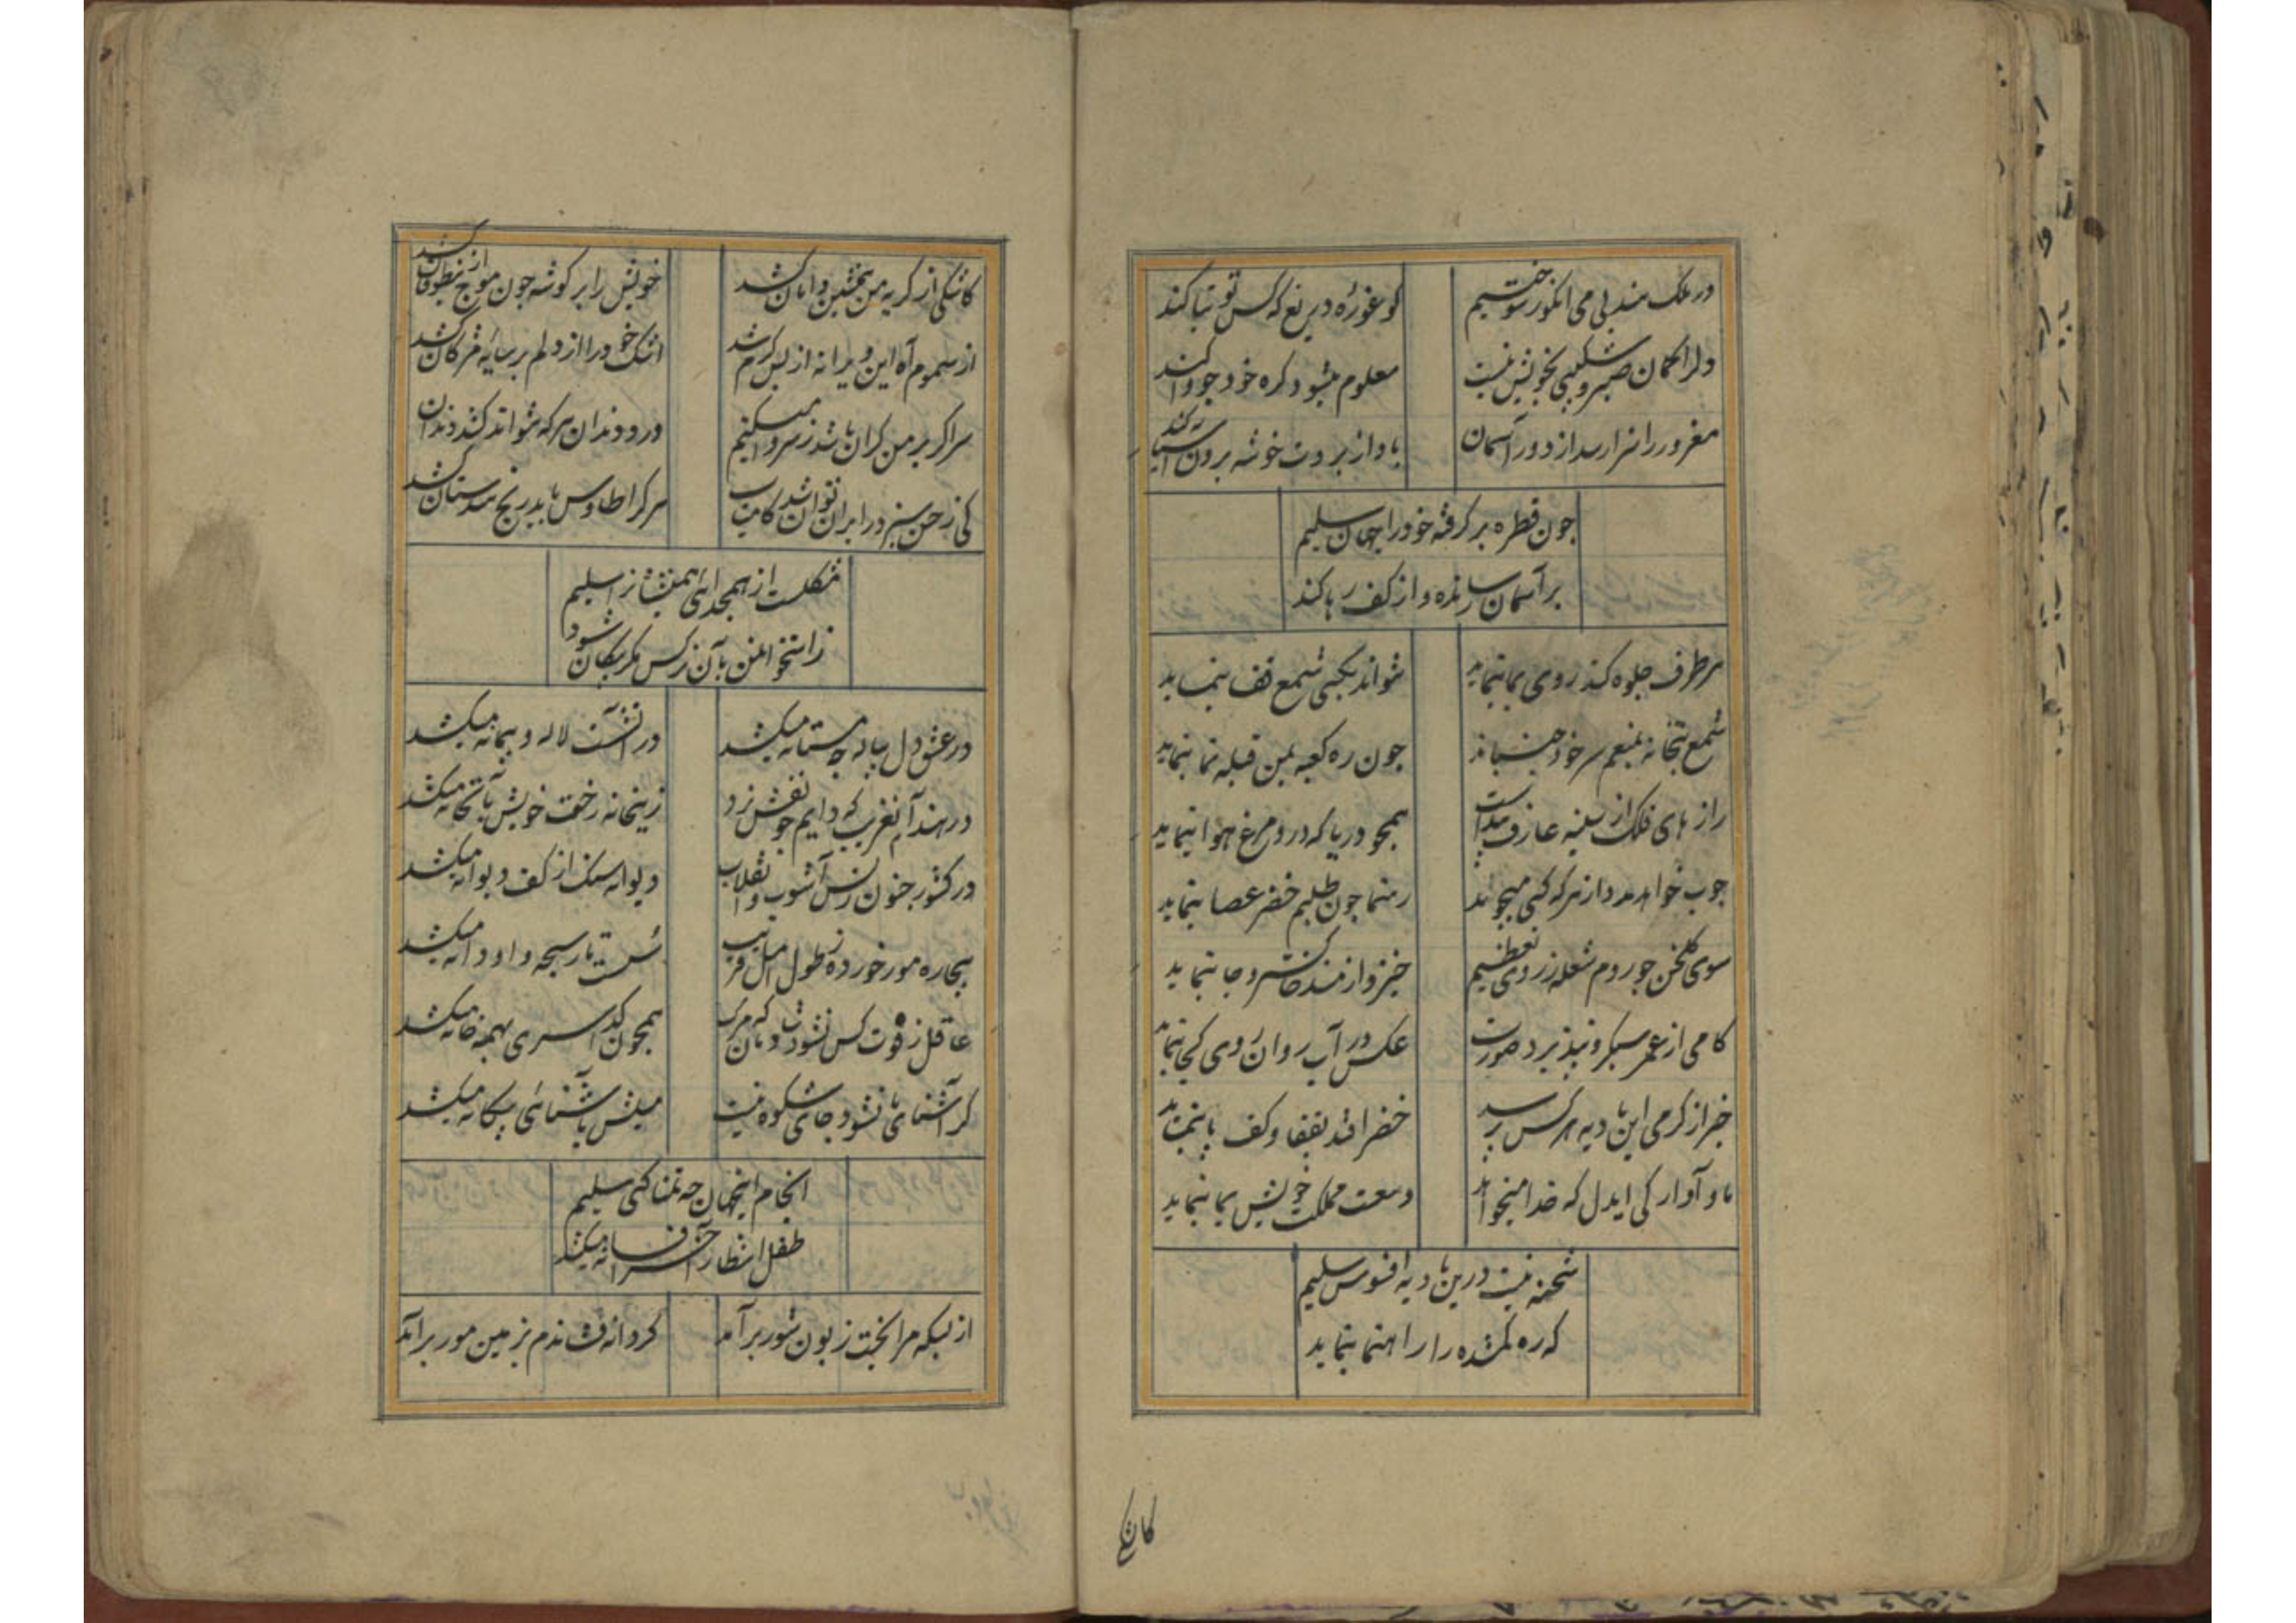 در ملک هند بی می انکور سوختیم
کو غوره دریغ که کس توتیا کند
دلرا کمان صبر و شکیبی بخویش نیست
معلوم میشود کره خود چو وا کند
مغرور را سزا رسد از دور آسمان
باد از بروت خوشه برون آسیا کند
چون قطره بر کرفته خود را جهان سلیم
بر آسمان رساند و از کف رها کند
هر طرف جلوه کند روی بما ننماید
نتواند بکسی شمع قفا ننماید
شمع بتخانه بمنعم سر خود جنباند
چون ره کعبه بمن قبله نما ننماید
راز های فلک از سینه عارف پیداست
همچو دریا که درو مرغ هوا ننماید
چوب خواهد مدد از هر که کسی میخواند
رهنما چون طلبم خضر عصا ننماید
سوی کلخن چو روم شعله ز روی تعظیم
خیزد از مسند خاکستر و جا ننماید
کامی از عمر سبکرو نپذیرد صورت
عکس در آب روان روی کجا ننماید
خبر از کرمی این بادیه هر کس پرسد
خضر افتد بقفا و کف پا ننماید
ما و آوارکی ایدل که خدا میخواهد
وسعت مملکت خویش بما ننماید
شحنه نیست درین بادیه افسوس سلیم
که ره کمشده را راهنما ننماید
کاشکی
کاشکی از کریه من همنشین دامان کشد
خویش را بر کوشه چون موج از طوفان کشد
از سموم آه این ویرانه از بس کرم شد
اشک خود را از دلم بر سایه مژکان کشد
سر اکر بر من کران باشد ز سر وا میکنم
درد دندان هر که نتواند کشد دندان کشد
کی ز حسن سبز در ایران توان شد کامیاب
هر کرا طاوس باید رنج هندستان کشد
مشکلست از هم جدائی همنشینانرا سلیم
ز استخوان من بآن نرکس مکر پیکان شود
در عشق دل پیاله چو مستانه میکشد
در آتشت لاله و پیمانه میکشد
در هند آن غریب که دایم چو نقش نرد
زینخانه رخت خویش بآنخانه میکشد
در کشور جنون ز بس آشوب و انقلاب
دیوانه سنک از کف دیوانه میکشد
بیچاره مور خورده ز طول امل فریب
سست تار سبحه و او دانه میکشد
غافل ز فوت کس نشود زان که مرک
همچون کدا سری بهمه خانه میکشد
کر آشنای ما نشود جای شکوه نیست
میلش بآشنائی بیکانه میکشد
انجام اینجهان چه تمنا کنی سلیم
طفل انتظار آخر افسانه میکشد
از بسکه مرا بخت زبون شور برآمد
کر دانه فشاندم بزمین مور برآمد